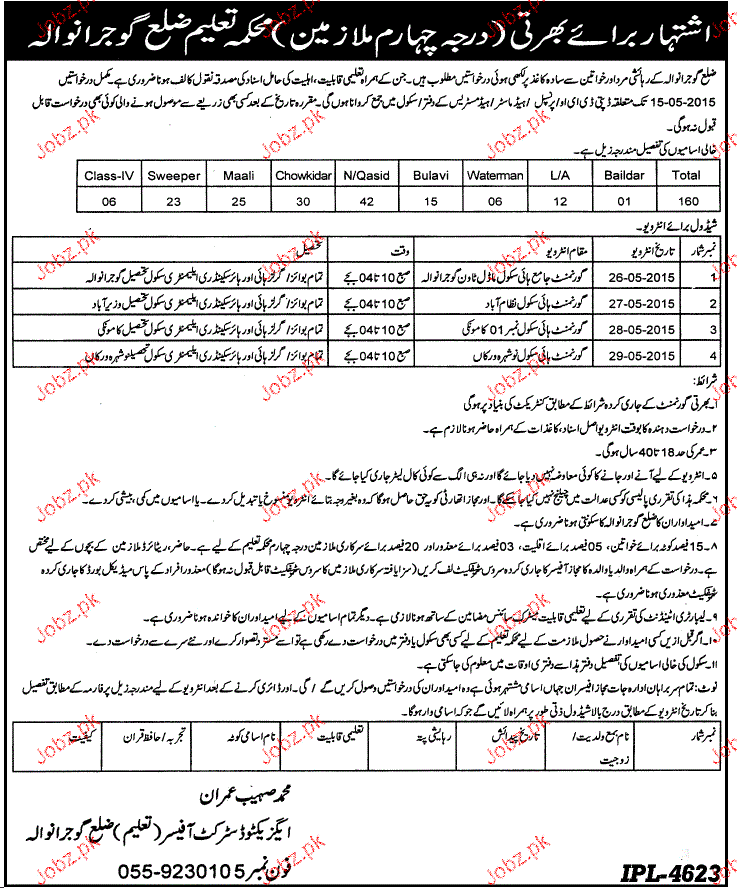 اشتہار برائے بھرتی (درجہ چہارم ملازمین) محکمہ تعلیم ضلع گوجرانوالہ
ضلع گوجرانوالہ کے رہائشی مرد اور خواتین سے سادہ کاغذ پر لکھی ہوئی درخواستیں مطلوب ہیں۔ جن کے ہمراہ تعلیمی قابلیت، اہلیت کی حامل اسناد کی مصدقہ نقول کا لف ہونا ضروری ہے۔ مکمل درخواستیں
15-05-2015 تک متعلقہ ڈپٹی ڈی ای او/پرنسپل/ہیڈ ماسٹر/ہیڈ مسٹریس کے دفتر/سکول میں جمع کروانا ہوں گی۔ مقررہ تاریخ کے بعد کسی بھی زریعے سے موصول ہونے والی کوئی بھی درخواست قابل
قبول نہ ہوگی۔
خالی اسامیوں کی تفصیل مندرجہ زیل ہے۔
Class-IV Sweeper Maali Chowkidar N/Qasid Bulavi Waterman L/A Baildar Total
06 23 25 30 42 15 06 12 01 160
شیڈول برائے انٹرویو۔
نمبر شمار تاریخ انٹرویو مقام انٹرویو وقت تحصیل
1 26-05-2015 گورنمنٹ جامع ہائی سکول ماڈل ٹاون گوجرانوالہ صبح 10 تا 04 بجے تمام بوائز/گرلز ہائی اور ہائر سکینڈری ایلیمنٹری سکول تحصیل گوجرانوالہ
2 27-05-2015 گورنمنٹ ہائی سکول نظام آباد صبح 10 تا 04 بجے تمام بوائز/گرلز ہائی اور ہائر سکینڈری ایلیمنٹری سکول تحصیل وزیر آباد
3 28-05-2015 گورنمنٹ ہائی سکول نمبر 01 کامونکی صبح 10 تا 04 بجے تمام بوائز/گرلز ہائی اور ہائر سکینڈری ایلیمنٹری سکول تحصیل کامونکی
4 29-05-2015 گورنمنٹ ہائی سکول نوشہرہ ورکاں صبح 10 تا 04 بجے تمام بوائز/گرلز ہائی اور ہائر سکینڈری ایلیمنٹری سکول تحصیل نوشہرہ ورکاں
شرائط:
۱۔ بھرتی گورنمنٹ کے جاری کردہ شرائط کے مطابق کنٹریکٹ کی بنیاد پر ہوگی
۲۔ درخواست دہندہ کا بوقت انٹرویو اصل اسناد، کاغذات کے ہمراہ حاضر ہونا لازم ہے۔
۳۔ عمر کی حد 18 تا 40 سال ہوگی۔
۵۔ انٹرویو کے لیے آنے اور جانے کا کوئی معاوضہ نہیں دیا جائے گا اور نہ ہی الگ سے کوئی کال لیٹر جاری کیا جائے گا۔
۶۔ محکمہ ہذا کی تقرری پالیسی کو کسی عدالت میں چیلنج نہیں کیا جا سکے گا۔ اور مجاز اتھارٹی کو یہ حق حاصل ہوگا کہ وہ بغیر وجہ بتائے انٹرویو منسوخ یا تبدیل کر دے۔ یا اسامیوں میں کمی، بیشی کر دے۔
۷۔ امیدواران کا ضلع گوجرانوالہ کا سکونتی ہونا ضروری ہے۔
۸۔ 15 فیصد کوٹہ برائے خواتین، 05 فیصد برائے اقلیت، 03 فیصد برائے معذور اور 20 فیصد برائے سرکاری ملازمین درجہ چہارم محکمہ تعلیم کے لیے ہے۔ حاضر، ریٹائرڈ ملازمین کے بچوں کے لیے مختص
ہے۔ درخواست کے ہمراہ والد یا والدہ کا مجاز آفیسر کا جاری کردہ سروس سرٹیفکیٹ لف کریں (سزا یافتہ سرکاری ملازمین کا سروس سرٹیفکیٹ قابل قبول نہ ہوگا) معذور افراد کے پاس میڈیکل بورڈ کا جاری کردہ
سرٹیفکیٹ معذوری ہونا ضروری ہے۔
۹۔ لیبارٹری اٹینڈنٹ کی تقرری کے لیے تعلیمی قابلیت میٹرک سائنس مضامین کے ساتھ ہونا لازمی ہے۔ دیگر تمام اسامیوں کے لیے امیدواران کا خواندہ ہونا ضروری ہے۔
۱۰۔ اگر قبل ازیں کسی امیدوار نے حصول ملازمت کے لیے محکمہ تعلیم کے کسی بھی سکول یا دفتر میں درخواست دے رکھی ہے تو اسے مسترد تصور کرے اور نئے سرے سے درخواست دے۔
۱۱۔ سکول کی خالی اسامیوں کی تفصیل دفتر ہذا سے دفتری اوقات میں معلوم کی جا سکتی ہے۔
نوٹ: تمام سربراہان ادارہ جات مجاز آفیسران جہاں اسامی مشتہر ہوئی ہے وہ امیدواران کی درخواستیں وصول کریں گے/گی۔ اور ڈائری کرنے کے بعد انٹرویو کے لیے مندرجہ زیل پرفارمہ کے مطابق تفصیل
بنا کر تاریخ انٹرویو کے مطابق درج بالا شیڈول ذتی طور پر ہمراہ لائیں گے جو کہ اسامی وار ہوگا۔
نمبر شمار نام بمع ولدیت/زوجیت تاریخ پیدائش رہایشی پتہ تعلیمی قابلیت نام اسامی کوٹہ تجربہ/حافظ قران کیفیت
محمد صہیب عمران
ایگزیکٹو ڈسٹرکٹ آفیسر (تعلیم) ضلع گوجرانوالہ
فون نمبر 055-9230105
IPL-4623